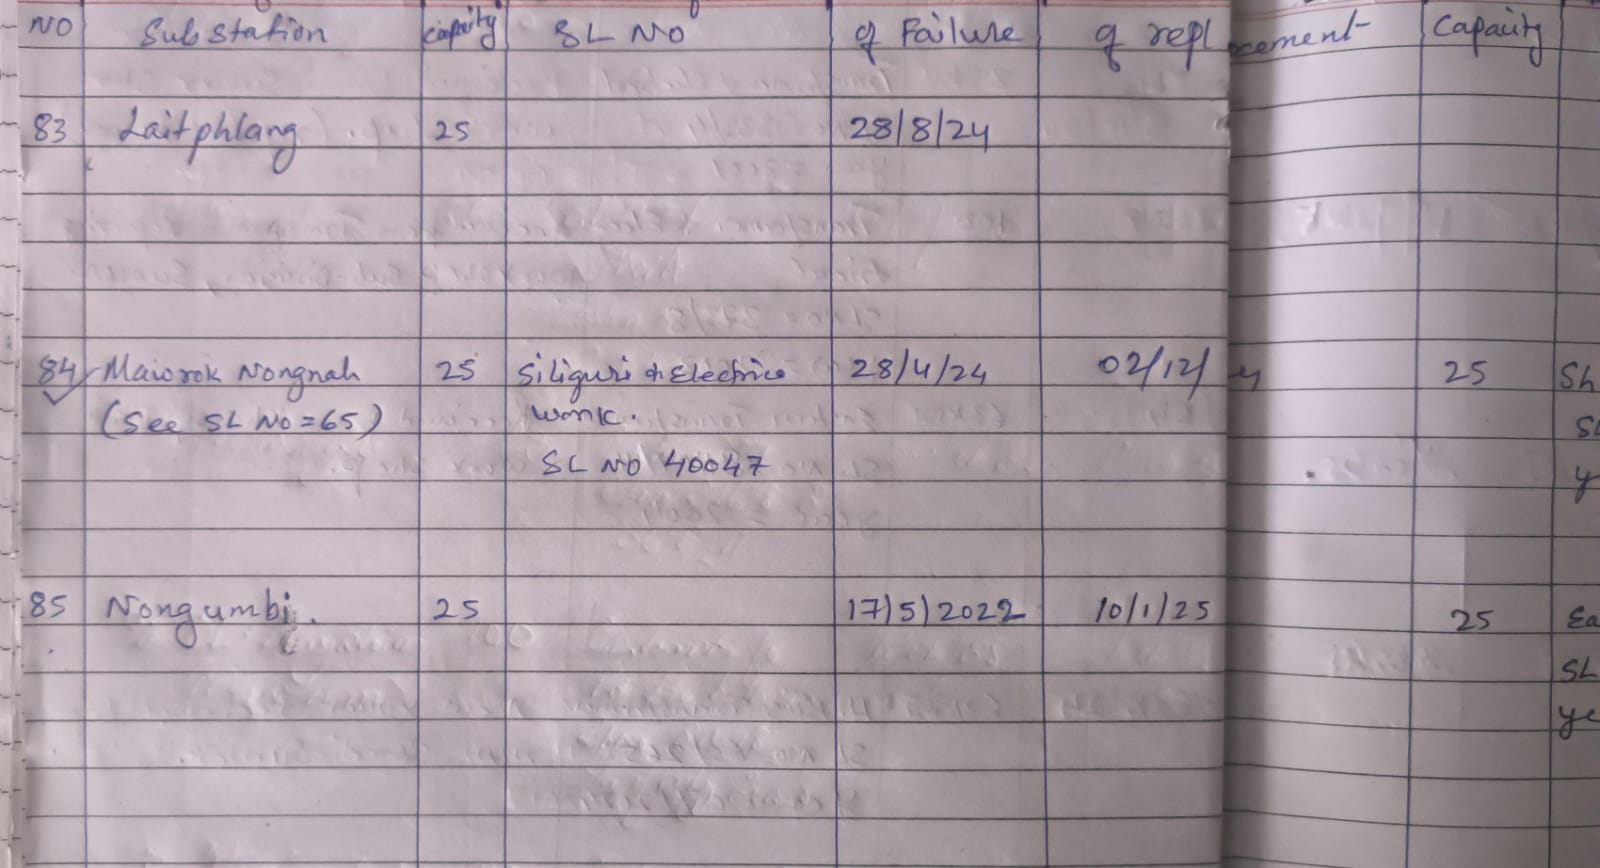 NO Substation capacity SL NO of Failure of repl cement Capacity
83 Laitphlang 25 28/8/24
84 Mawrok Nongnah 25 Siliguri & Electrice 28/4/24 02/12/ 4 25 Sh
(See SL No = 65) work. SL
SL NO 40047 y
85 Nongumbi. 25 17/5/2022 10/1/25 25 Ea
SL
ye